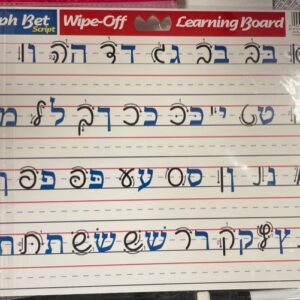 ph Bet Wipe-Off Learning Board
Script
בּבּ בב גג דד הה וו
טט יי כּכּ ככ ךך לל מ
נ ןן סס עע פּפּ פפ ף
ץץ קק רר שׁשׁ שׂשׂ תּתּ ת